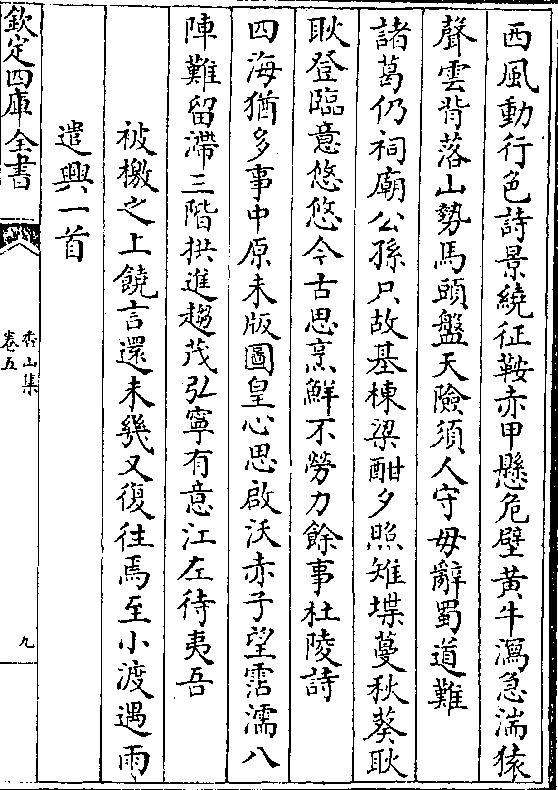 西風動行色詩景繞征鞍赤甲懸危壁黄牛瀉急湍猿
聲雲背落山勢馬頭盤天險須人守毋辭蜀道難
諸葛仍祠廟公孫只故基棟梁酣夕照雉堞蔓秋葵耿
耿登臨意悠悠今古思烹鮮不勞力餘事杜陵詩
四海猶多事中原未版圖皇心思啟沃赤子望霑濡八
陣難留滯三階拱進趨茂弘寧有意江左待夷吾
被檄之上饒言還未幾又復往焉至小渡遇雨
遣興一首
欽定四庫全書
香山集
卷五
九